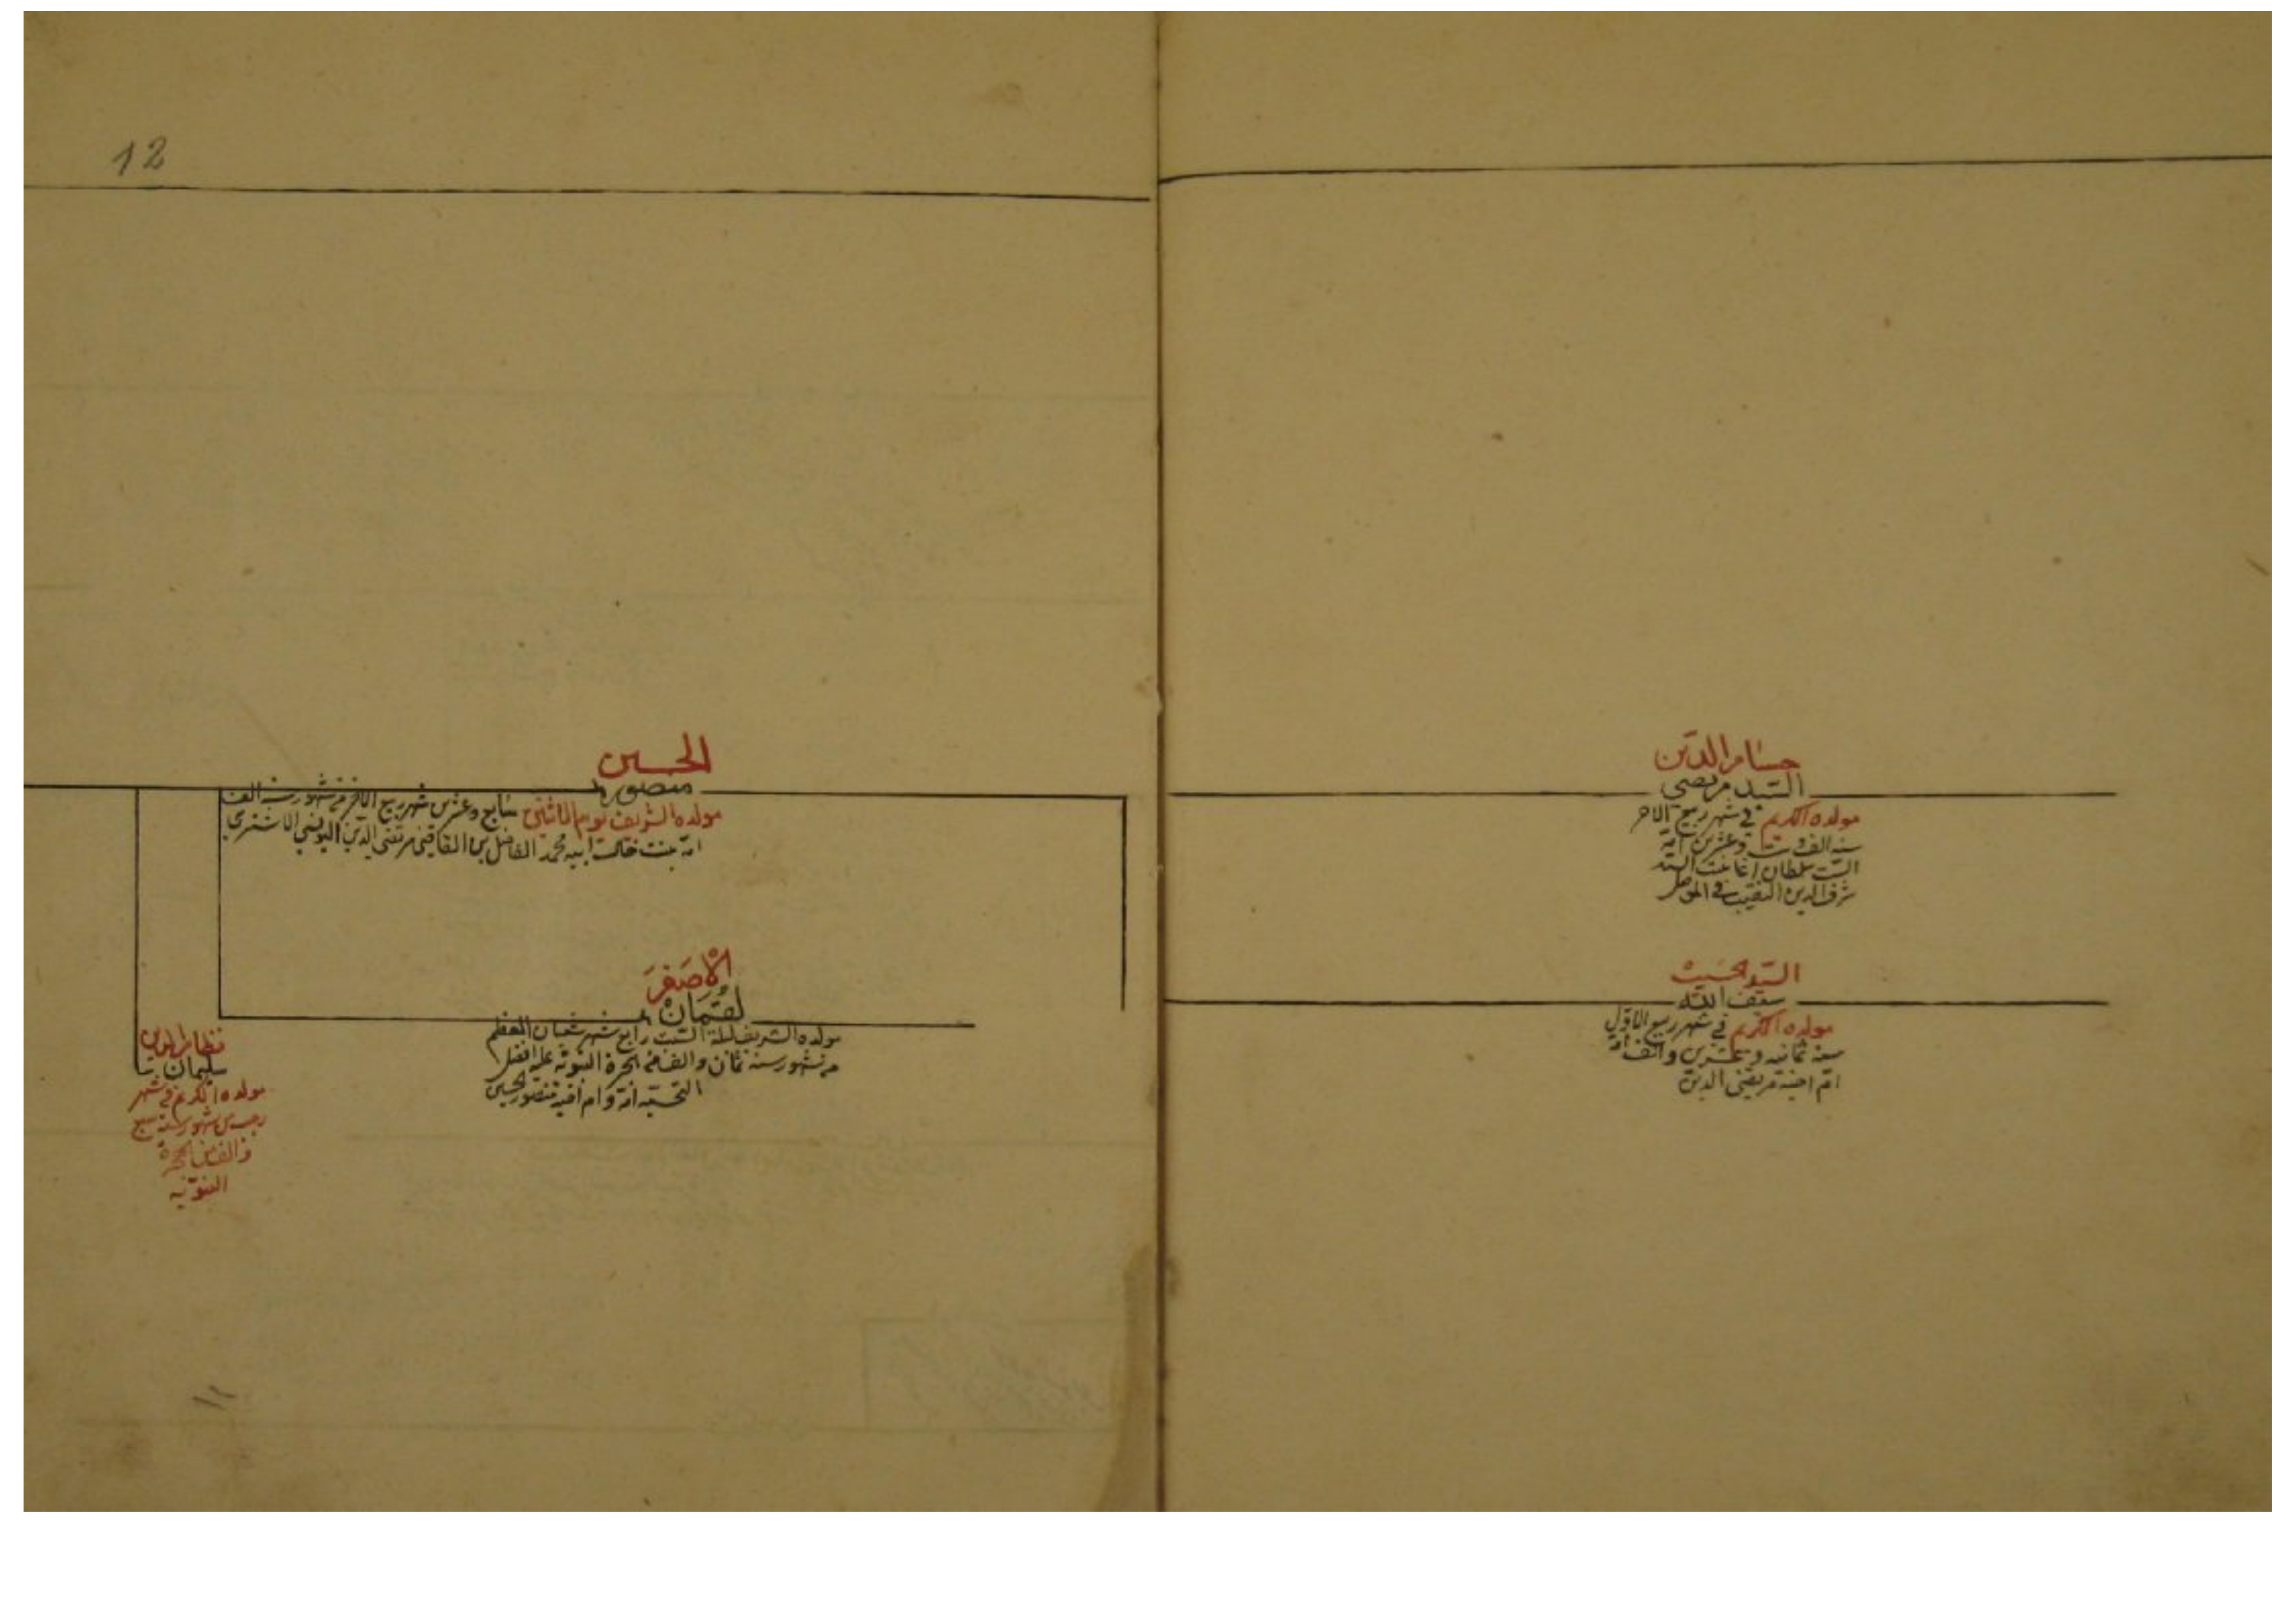 12
حسام الدين
السيد مرتضى
مولده الكريم في شهر ربيع الاخر
سنة الف وست وعشرين امه
الست سلطان اغا بنت السيد
شرف الدين النقيب في الموصل
السيد
سيف الله
مولده الكريم في شهر ربيع الاول
سنة ثمانيه وعشرين والف امه
ام اخيه مرتضى الدين
الحسين
منصور
مولده الشريف يوم الاثنين سابع وعشرين شهر ربيع الاخر من شهور سنة الف
امه بنت خالت ابيه محمد الفاضل بن القاضي مرتضى الدين اليونسي الاشتري
الاصغر
لقمان
مولده الشريف ليلة السبت رابع شهر شعبان المعظم
من شهور سنة ثمان والف من الهجرة النبوية على افضل
التحية امه وام اخيه منصور الحسين
نظام الدين
سليمان
مولده الكريم في شهر
رجب من شهور سنة سبع
والف من الهجرة
النبوية
١١